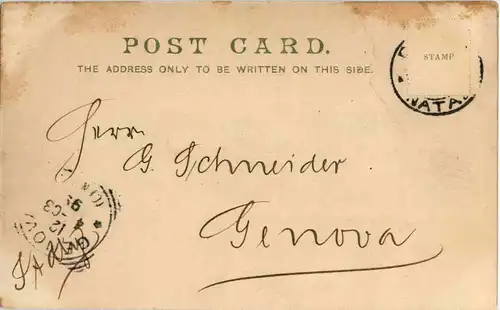 POST CARD.
THE ADDRESS ONLY TO BE WRITTEN ON THIS SIDE.
STAMP
NATAL
Herr
G. Schneider
Genova